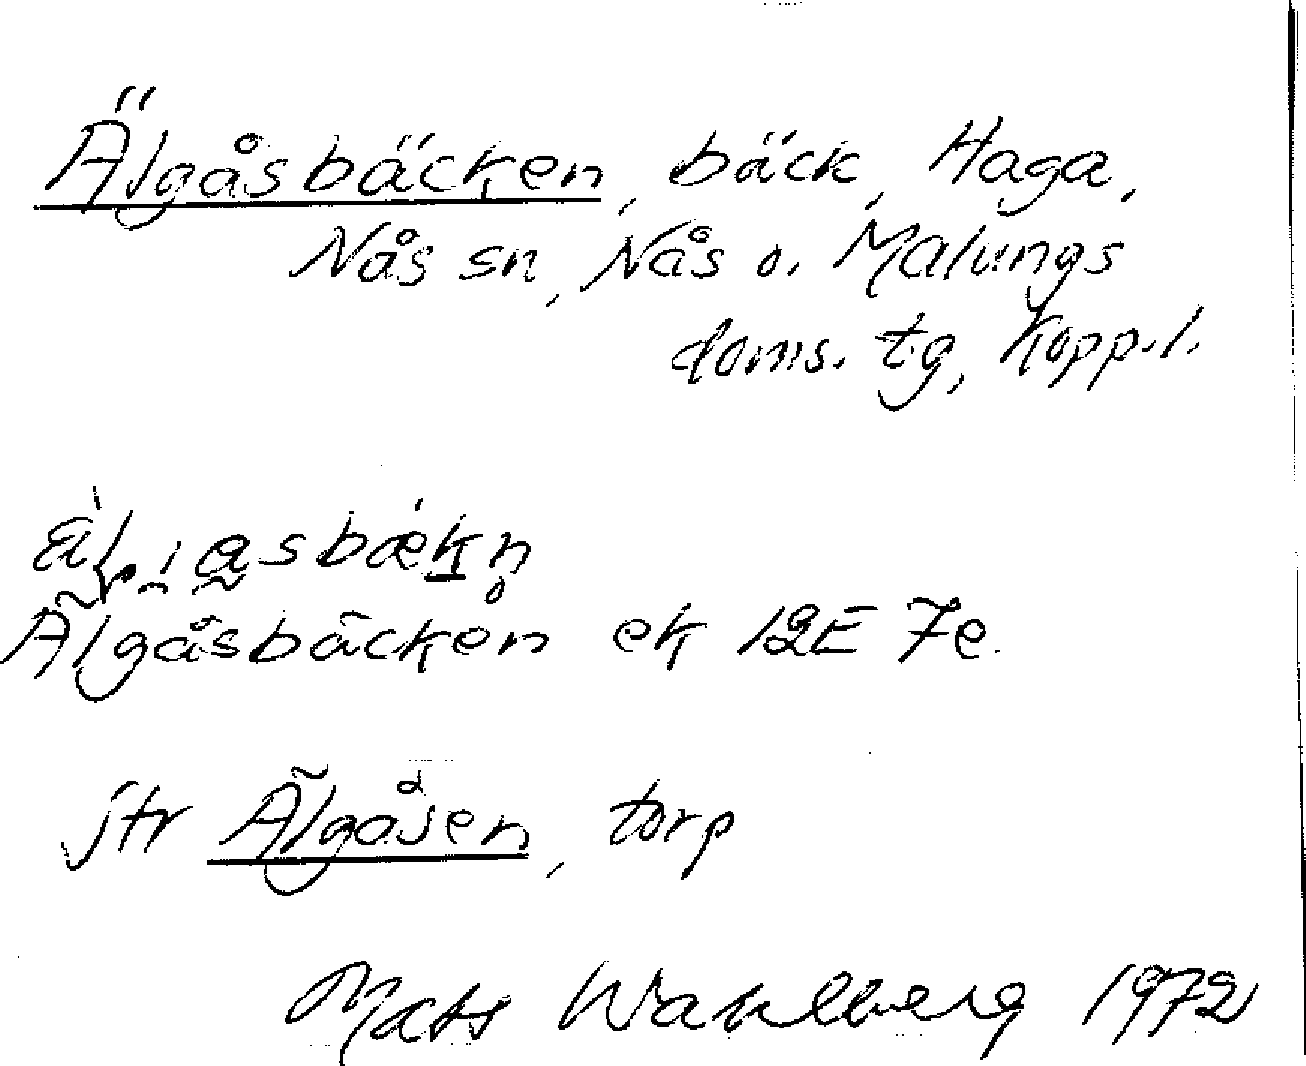 Älgåsbäcken, bäck, Haga,
Nås sn, Nås o. Malungs
doms. tg, Kopp. l.
Älgåsbäcken ek 12E 7e.
jtr Älgåsen, torp
Mats Wahlberg 1972